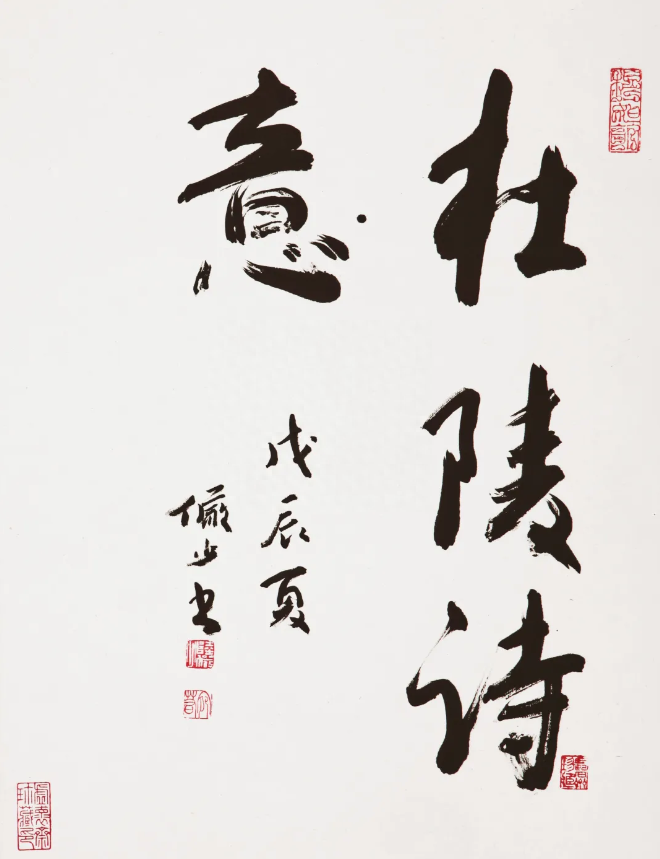 杜陵诗
意
戊辰夏
俨少书